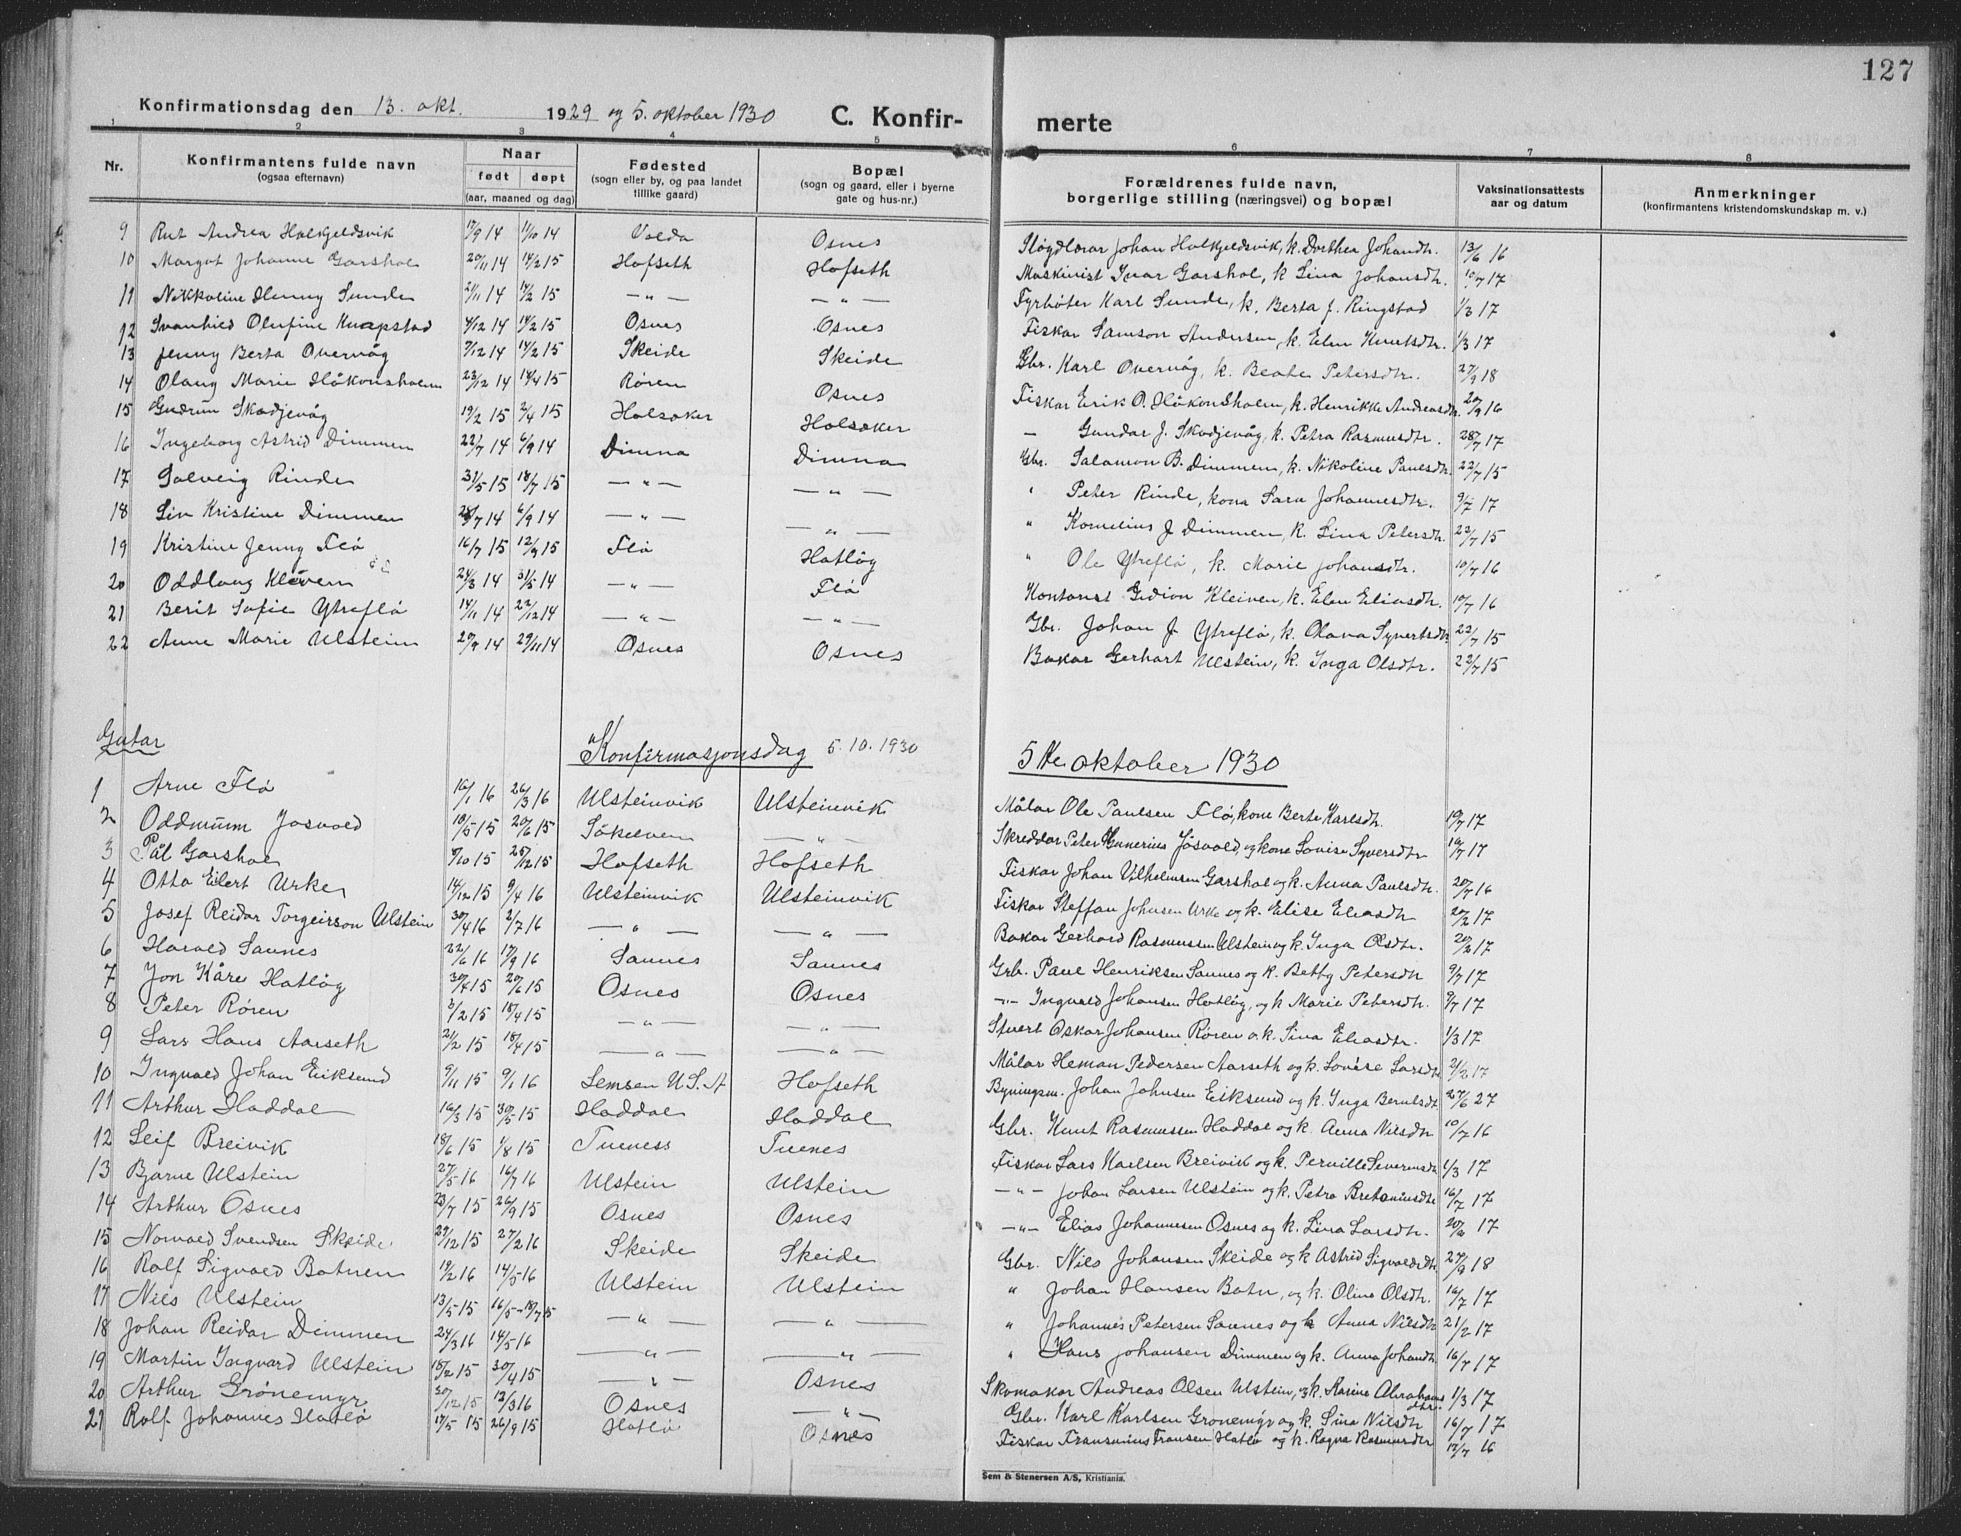 127
Konfirmationsdag den 13. okt. 1929 og 5. oktober 1930 C. Konfir- merte
1 2 3 4 5 6 7 8
Nr. Konfirmantens fulde navn (ogsaa efternavn) Naar født døpt (aar, maaned og dag) Fødested (sogn eller by, og paa landet tillike gaard) Bopæl (sogn og gaard, eller i byerne gate og hus-nr.) Forældrenes fulde navn, borgerlige stilling (næringsvei) og bopæl Vaksinationsattests aar og datum Anmerkninger (konfirmantens kristendomskundskap m. v.)
9 Rut Andrea Halkjeldsvik 17/9 14 11/10 14 Volda Osnes Sløydlærar Johan Halkjeldsvik, k. Dorthea Johandtr. 13/6 16
10 Margot Johanne Garshol 20/11 14 14/2 15 Hofseth Hofseth Maskinist Ivar Garshol, k. Lina Johansdtr. 10/7 17
11 Nikkoline Henny Sunde 21/11 14 14/2 15 — " — — " — Fyrbøter Karl Sunde, k. Berta J. Ringstad 1/3 17
12 Svanhied Olufine Knapstad 4/12 14 14/2 15 Osnes Osnes Fiskar Samson Andersen, k. Elen Knutsdtr. 1/3 17
13 Jenny Berta Overvåg 7/12 14 14/2 15 Skeide Skeide Gbr. Karl Overvåg, k. Beate Petersdtr. 27/9 18
14 Olaug Marie Håkonsholm 23/12 14 14/4 15 Røren Osnes Fiskar Erik O. Håkonsholm, k. Henrikke Andreasdtr. 20/9 16
15 Gudrun Skadjevåg 19/2 15 2/4 15 Halsøker Halsøker — Gundar J. Skodjevåg, k. Petra Rasmusdtr. 28/7 17
16 Ingeborg Astrid Dimmen 22/7 14 6/9 14 Dimna Dimna Gbr. Salamon B. Dimmen, k. Nikoline Paulsdtr. 22/7 15
17 Solveig Rinde 31/5 15 18/7 15 — " — — " — " Peter Rinde, kona Sara Johannesdtr. 9/7 17
18 Liv Kristine Dimmen 28/7 14 6/9 14 — " — — " — " Kornelius J. Dimmen, k. Lina Petersdtr. 22/7 15
19 Kristine Jenny Flø 16/7 15 12/9 15 Flø Hatløy " Ole Ytreflø, k. Marie Johansdtr. 10/7 16
20 Oddlaug Kleven 24/3 14 31/5 14 — " — Flø Kontorist Gidion Kleiven, k. Elen Eliasdtr. 10/7 16
21 Berit Sofie Ytreflø 14/11 14 22/12 14 — " — — " — Gbr. Johan J. Ytreflø, k. Olava Syvertsdtr. 22/7 15
22 Anne Marie Ulstein 20/9 14 29/11 14 Osnes Osnes Bakar Gerhart Ulstein, k. Inga Olsdtr. 22/7 15
Gutar Konfirmasjonsdag 5.10.1930 5te oktober 1930
1 Arne Flø 16/1 16 26/3 16 Ulsteinvik Ulsteinvik Målar Ole Paulsen Flø, kone Berte Karlsdtr. 19/7 17
2 Oddmunn Jøsvold 10/5 15 20/6 15 Søkelven — " — Skreddar Peter Gunerius Jøsvold, og kone Lovise Syversdtr 10/7 17
3 Pål Garshol 9/10 15 26/12 15 Hofseth Hofseth Fiskar Johan Vilhelmsen Garshol og k. Anna Paulsdtr. 20/7 16
4 Otto Eilert Urke 14/12 15 9/4 16 Ulsteinvik Ulsteinvik Fiskar Steffan Johnsen Urke og k. Elise Eliasdtr 20/2 17
5 Josef Reidar Torgeirson Ulstein 30/4 16 2/7 16 — " — — " — Bakar Gerhard Rasmussen Ulstein og k. Inga Olsdtr. 20/2 17
6 Harald Saunes 22/6 16 17/9 16 Saunes Saunes Grb. Paul Henriksen Saunes og k. Betty Petersdtr 9/7 17
7 Jon Kåre Hatløy 30/4 15 20/6 15 Osnes Osnes —"— Ingvald Johansen Hatløy, og k Marie Petersdtr. 9/7 17
8 Peter Røren 3/2 15 18/4 15 — " — — " — Stuert Oskar Johansen Røren o. k. Sina Eliasdtr. 1/3 17
9 Lars Hans Aarseth 21/2 15 18/4 15 — " — — " — Målar Heman Pedersen Aarseth og k. Lovise Larsdtr 21/2 17
10 Ingvald Johan Eiksund 9/11 15 9/1 16 Lemsen U.S.A Hofseth Bygningsm. Johan Johnsen Eiksund og k. Inga Berntsdtr 27/6 27
11 Arthur Haddal 16/3 15 30/5 15 Haddal Haddal Gbr. Knut Rasmussen Haddal og k. Anna Nilsdtr 10/7 16
12 Leif Breivik 18/6 15 1/8 15 Tueness Tuenes Fiskar Lars Karlsen Breivik og k. Pernille Severinsdtr 1/3 17
13 Bjarne Ulstein 27/5 16 16/7 16 Ulstein Ulstein —"— Johan Larsen Ulstein og k. Petra Bretaniusdtr 16/7 17
14 Arthur Osnes 23/7 15 26/9 15 Osnes Osnes —"— Elias Johannesen Osnes og k. Lina Larsdtr. 20/2 17
15 Norvald Svendsen Skeide 29/12 15 27/2 16 Skeide Skeide Gbr. Nils Johansen Skeide og k Astrid Sigvaldsdtr 27/9 18
16 Rolf Sigvald Botnen 19/2 16 14/5 16 Ulstein Ulstein " Johan Hansen Botn, og k. Oline Olsdtr. 16/7 17
17 Nils Ulstein 13/5 15 16/5-18/7 15 — " — — " — " Johannes Petersen Saunes og k Anna Nilsdtr 21/2 17
18 Johan Reidar Dimmen 24/3 16 14/5 16 — " — — " — " Hans Johansen Dimmen og k. Anna Johandtr 16/7 17
19 Martin Ingvard Ulstein 18/2 15 30/4 15 — " — Osnes Skomakar Andreas Olsen Ulstein, og k. Karine Abrahamsdtr. 1/3 17
20 Arthur Grönemyr 20/12 15 12/3 16 Osnes — " — Gbr. Karl Karlsen Grönemyr og k. Sina Nilsdtr 16/7 17
21 Rolf Johannes Hatlø 17/5 15 26/9 15 Hatlø Osnes Fiskar Fransenius Fransen Hatlø og k. Ragna Rasmusdtr 12/7 16
Sem & Stenersen A/S, Kristiania.